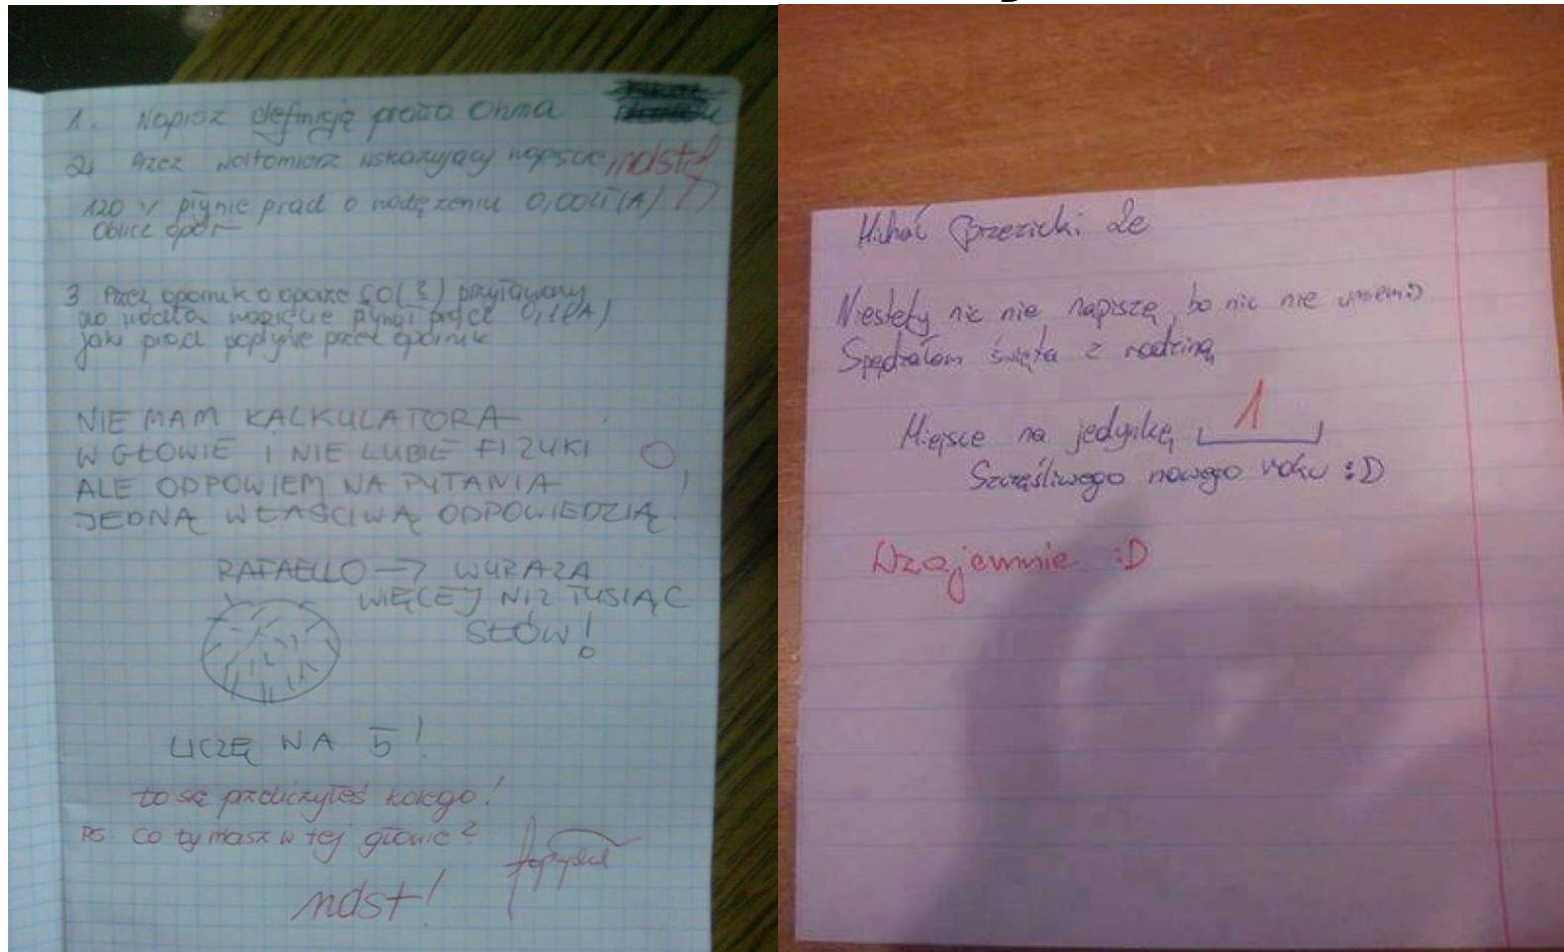 1. Napisz definicję prawa Ohma
2) Przez woltomierz wskazujący napięcie ndst!
120 V płynie prąd o natężeniu (A)
oblicz opór
3 Przez opornik o oporze przyłączony
do płynął prąd
jaki prąd popłynie przez opornik
NIE MAM KALKULATORA
W GŁOWIE I NIE LUBIE FIZYKI
ALE ODPOWIEM NA PYTANIA
JEDNĄ WŁAŚCIWĄ ODPOWIEDZIĄ.
RAFAELLO → WYRAŻA
WIĘCEJ NIŻ TYSIĄC
SŁÓW!
LICZĘ NA 5!
to się przeliczyłeś kolego!
PS. Co ty masz w tej głowie?
ndst!
Michał Brzezicki 2e
Niestety nic nie napiszę, bo nic nie umiem :)
Spędzałem święta z rodziną
Miejsce na jedynkę 1
Szczęśliwego nowego roku :D
Wzajemnie :D